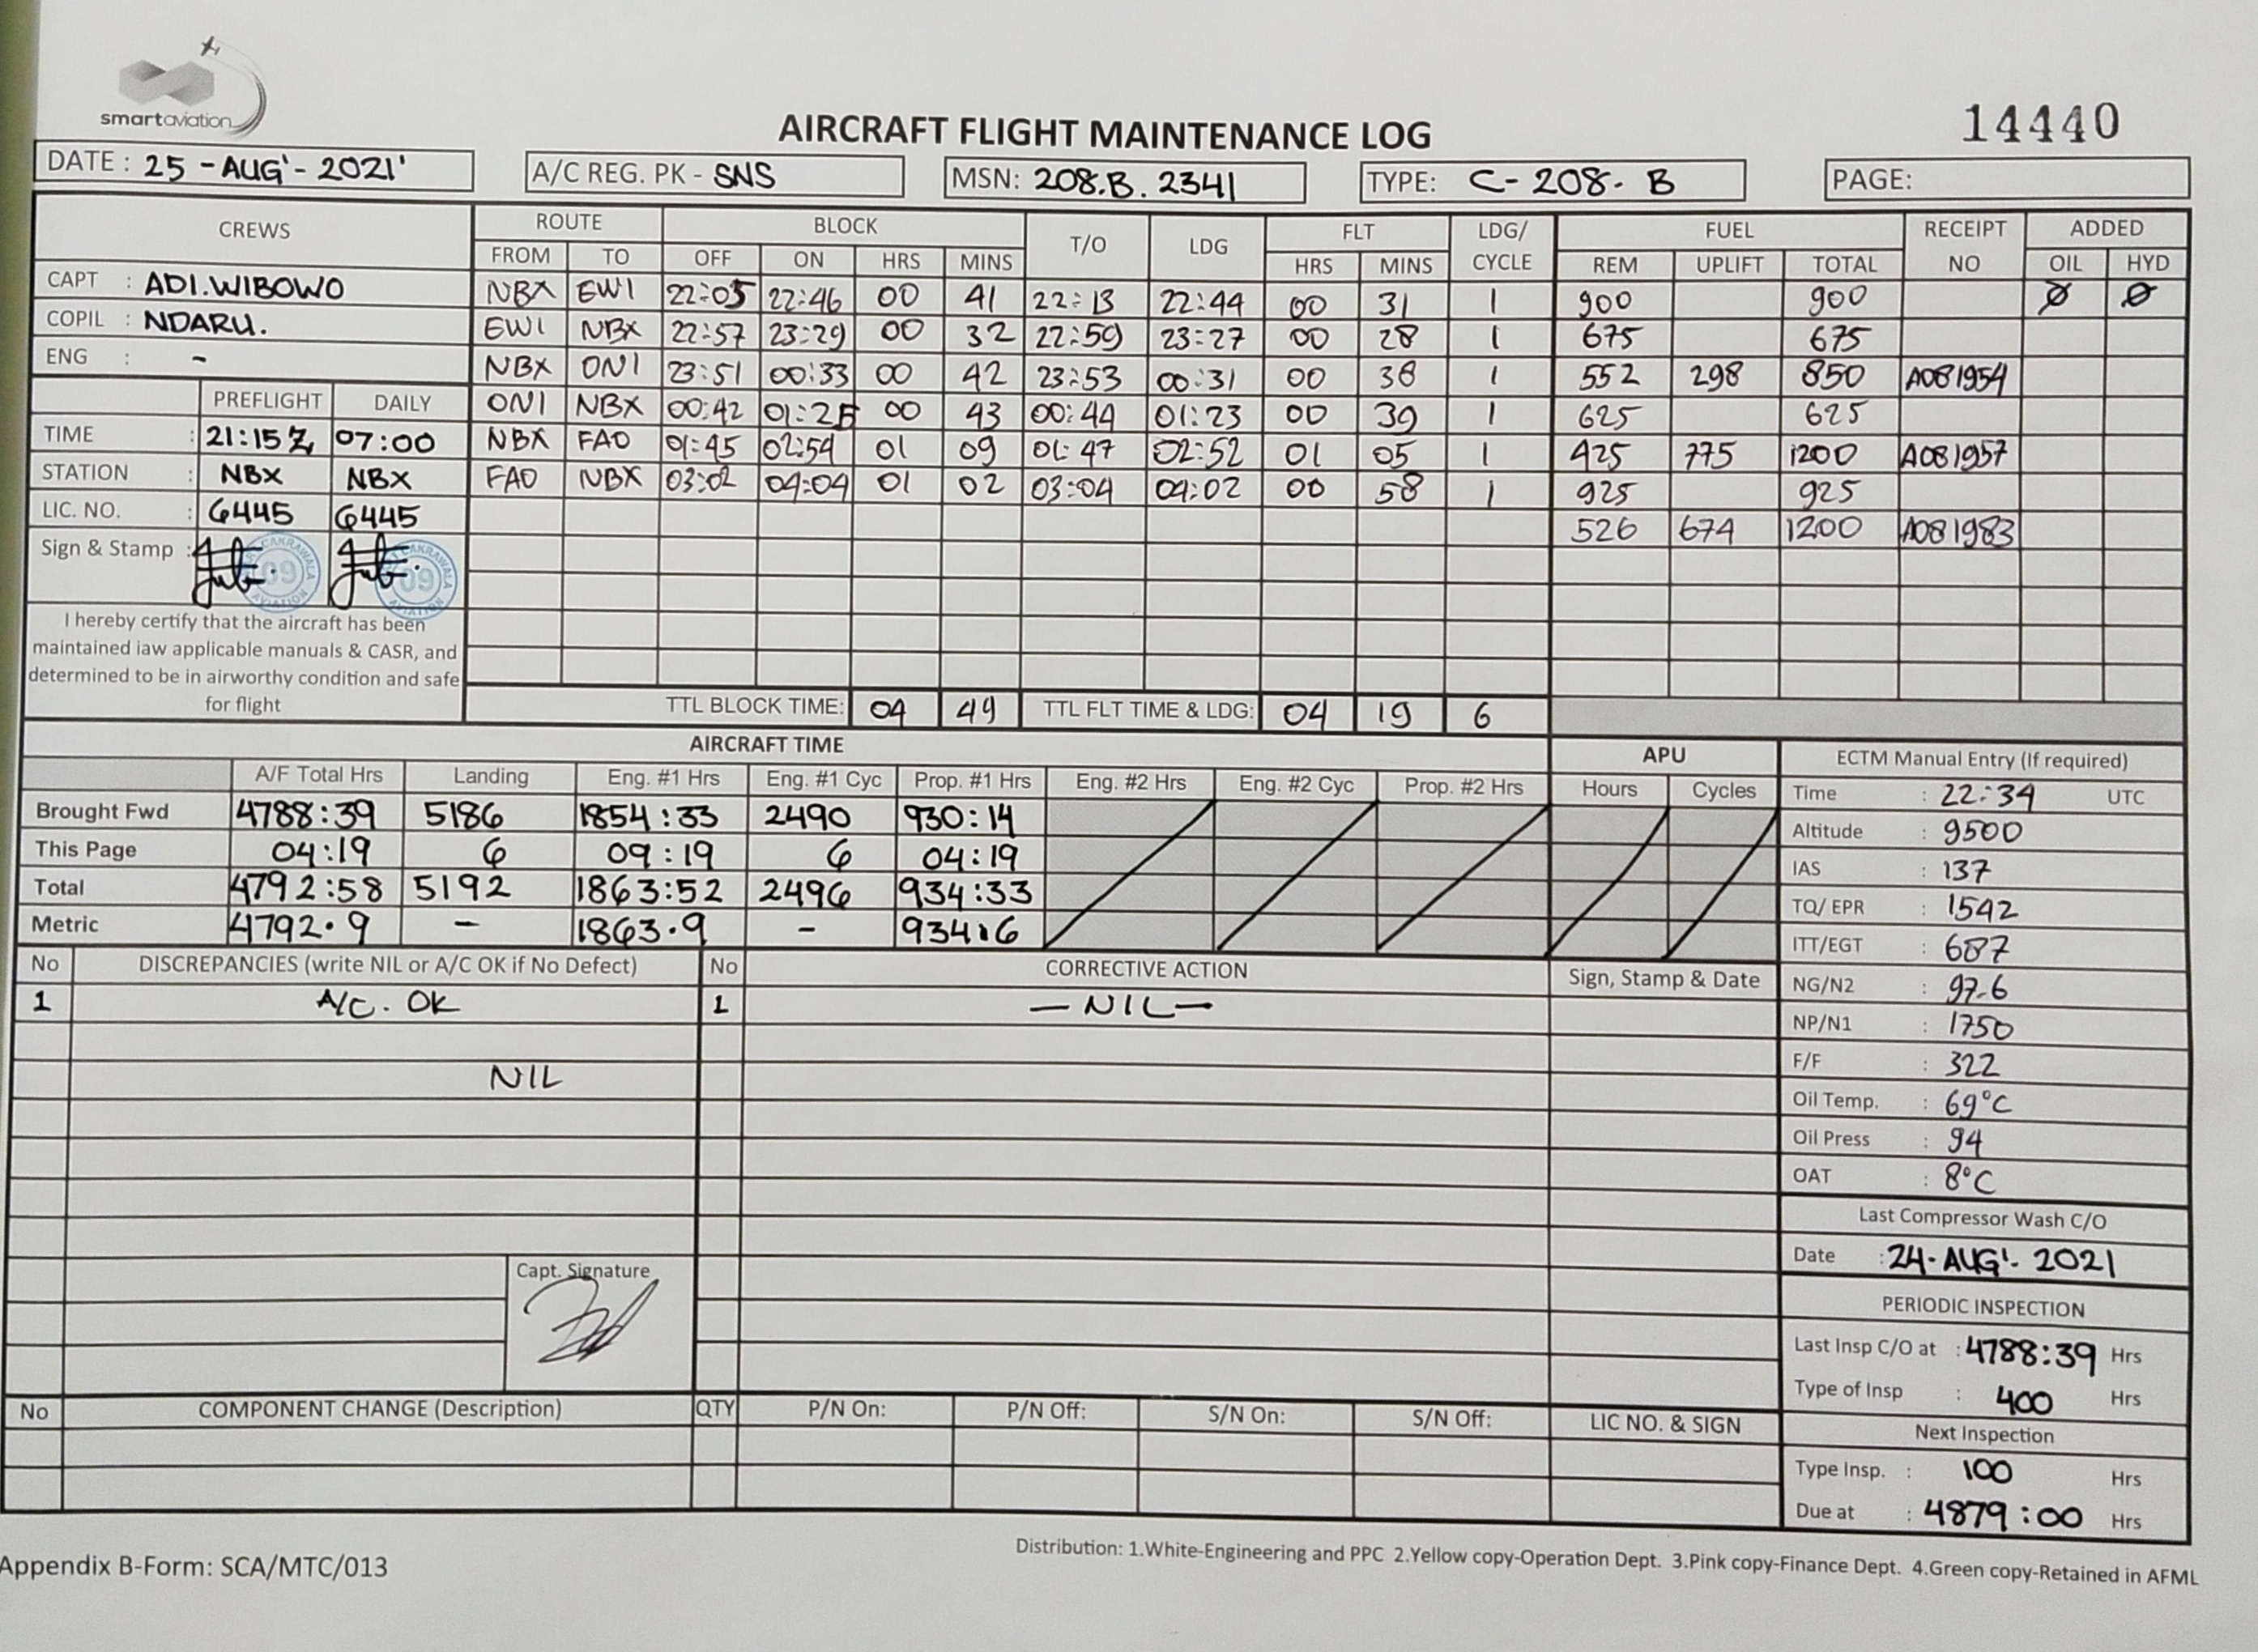 smartaviation
AIRCRAFT FLIGHT MAINTENANCE LOG
14440
DATE : 25 - AUG' - 2021'
A/C REG. PK - SNS
MSN: 208.B. 2341
TYPE: C- 208- B
PAGE:
CREWS ROUTE BLOCK T/O LDG FLT LDG/ CYCLE FUEL RECEIPT NO ADDED
FROM TO OFF ON HRS MINS HRS MINS REM UPLIFT TOTAL OIL HYD
CAPT : ADI.WIBOWO
COPIL : NDARU.
ENG : -
NBX EWI 22:05 22:46 00 41 22:13 22:44 00 31 1 900 900 Ø Ø
EWI NBX 22:57 23:29 00 32 22:59 23:27 00 28 1 675 675
NBX ONI 23:51 00:33 00 42 23:53 00:31 00 38 1 552 298 850 A081954
ONI NBX 00:42 01:25 00 43 00:44 01:23 00 39 1 625 625
NBX FAO 01:45 02:54 01 09 01:47 02:52 01 05 1 425 775 1200 A081957
FAO NBX 03:02 04:04 01 02 03:04 04:02 00 58 1 925 925
526 674 1200 A081983
PREFLIGHT DAILY
TIME : 21:15 Z 07:00
STATION : NBX NBX
LIC. NO. : 6445 6445
Sign & Stamp :
CAKRAWALA 09 AVIATION
CAKRAWALA 09 AVIATION
I hereby certify that the aircraft has been
maintained iaw applicable manuals & CASR, and
determined to be in airworthy condition and safe
for flight
TTL BLOCK TIME: 04 49 TTL FLT TIME & LDG: 04 19 6
AIRCRAFT TIME APU
A/F Total Hrs Landing Eng. #1 Hrs Eng. #1 Cyc Prop. #1 Hrs Eng. #2 Hrs Eng. #2 Cyc Prop. #2 Hrs Hours Cycles
Brought Fwd 4788:39 5186 1854:33 2490 930:14
This Page 04:19 6 09:19 6 04:19
Total 4792:58 5192 1863:52 2496 934:33
Metric 4792.9 - 1863.9 - 934.6
ECTM Manual Entry (If required)
Time : 22:34 UTC
Altitude : 9500
IAS : 137
TQ/ EPR : 1542
ITT/EGT : 687
NG/N2 : 97.6
NP/N1 : 1750
F/F : 322
Oil Temp. : 69°C
Oil Press : 94
OAT : 8°C
Last Compressor Wash C/O
Date : 24-AUG'- 2021
PERIODIC INSPECTION
Last Insp C/O at : 4788:39 Hrs
Type of Insp : 400 Hrs
Next Inspection
Type Insp. : 100 Hrs
Due at : 4879:00 Hrs
No DISCREPANCIES (write NIL or A/C OK if No Defect) No CORRECTIVE ACTION Sign, Stamp & Date
1 A/C. OK 1 — NIL —
NIL
Capt. Signature
No COMPONENT CHANGE (Description) QTY P/N On: P/N Off: S/N On: S/N Off: LIC NO. & SIGN
Distribution: 1.White-Engineering and PPC 2.Yellow copy-Operation Dept. 3.Pink copy-Finance Dept. 4.Green copy-Retained in AFML
Appendix B-Form: SCA/MTC/013